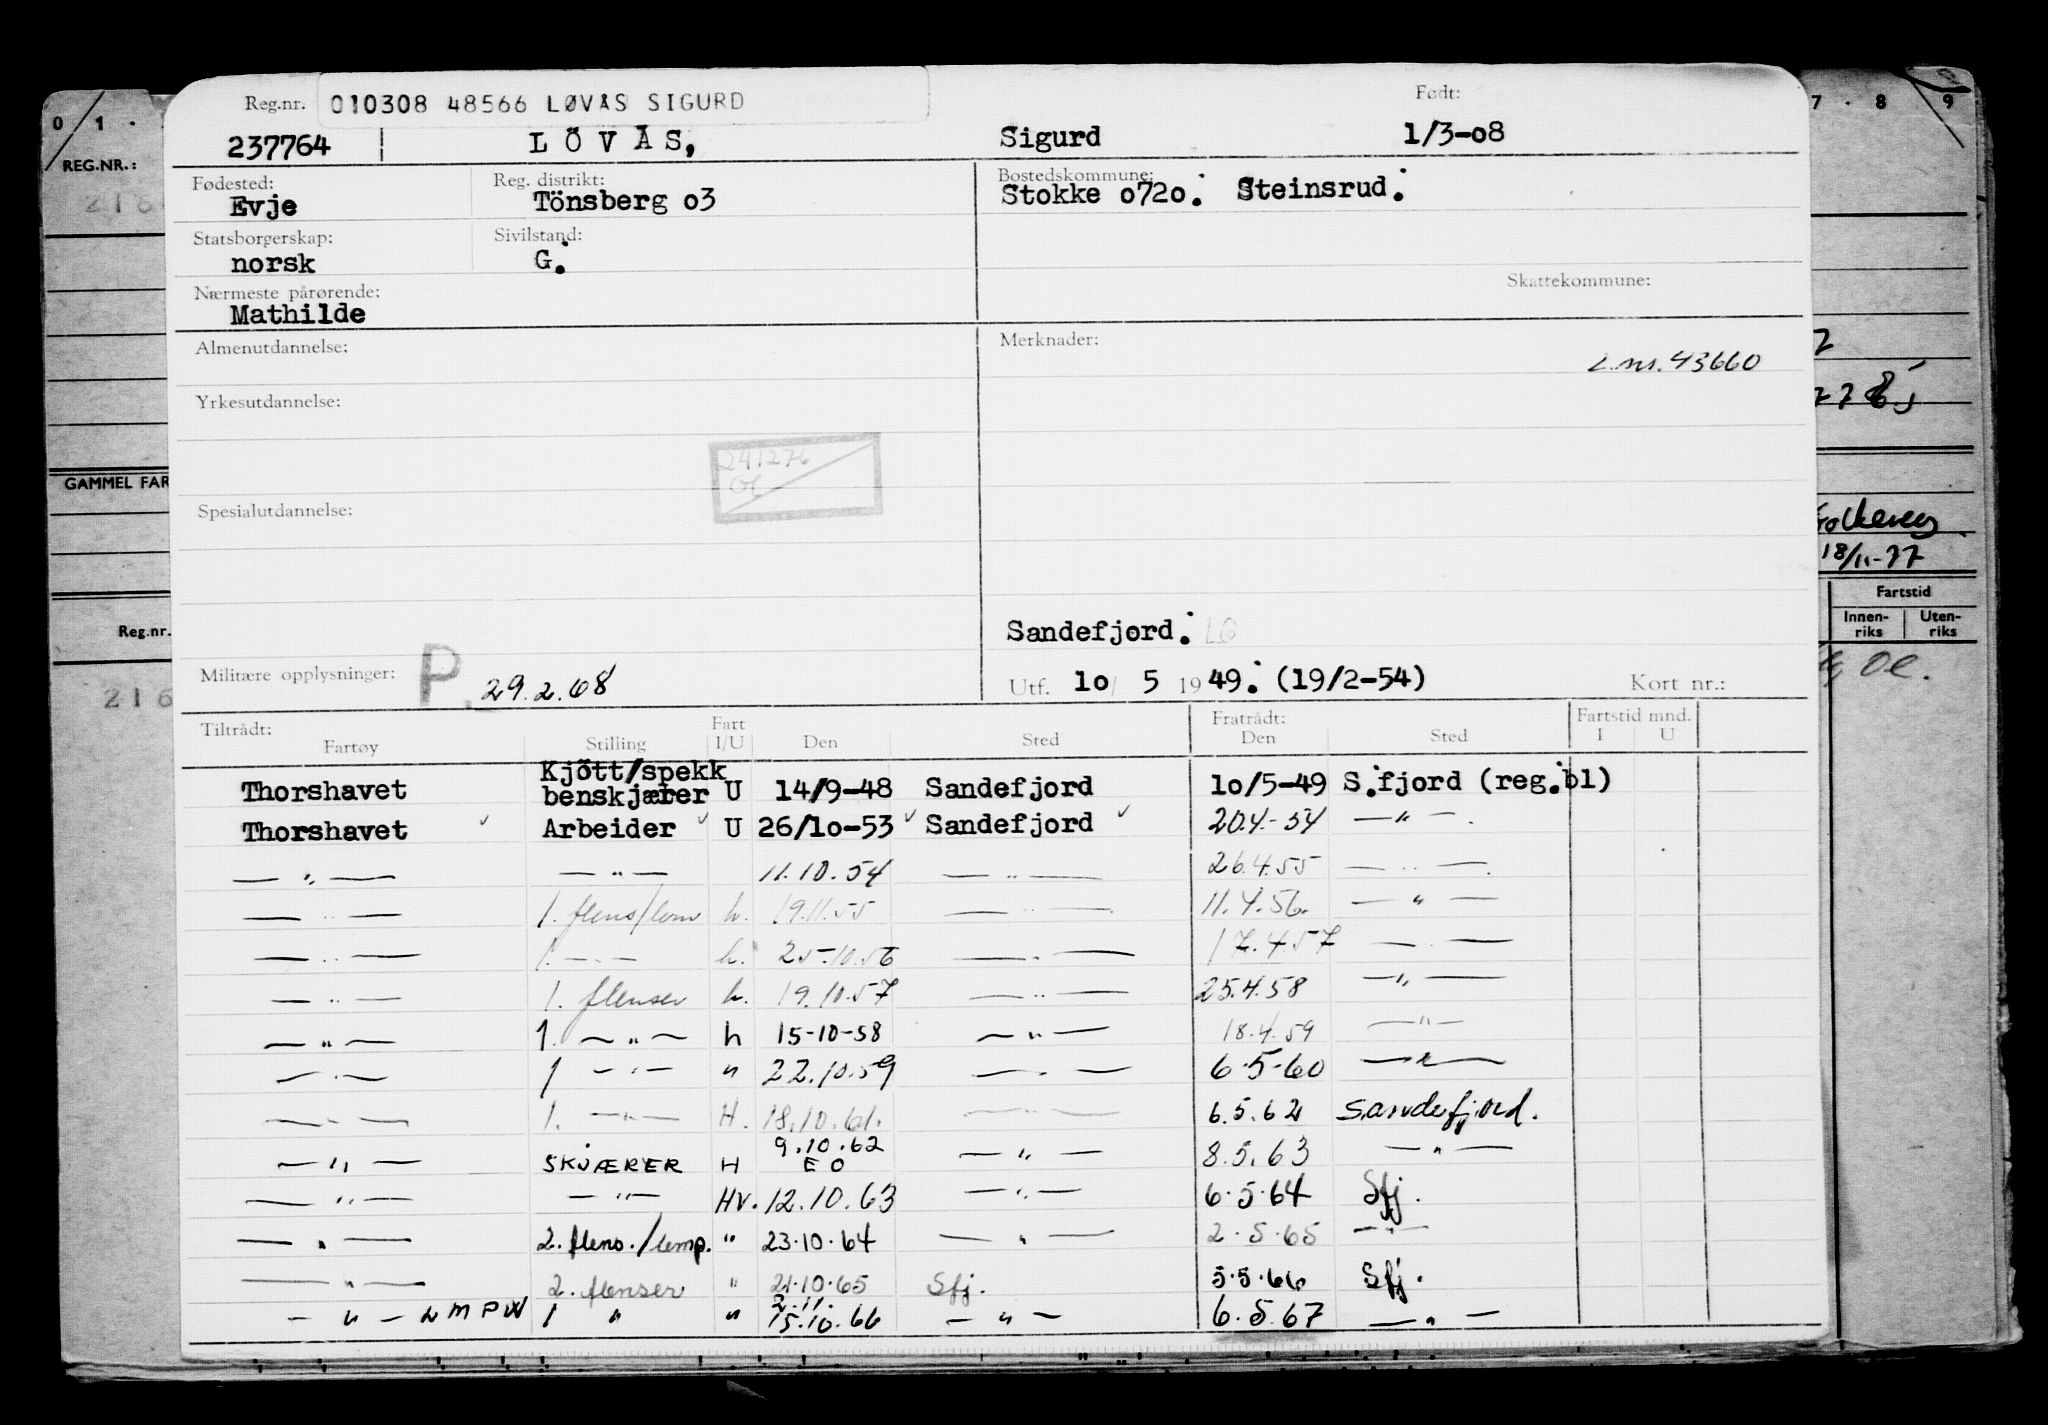 Reg.nr. 010308 48566 LØVÅS SIGURD Født:
237764 LÖVÅS, Sigurd 1/3-08
Fødested: Reg. distrikt: Bostedskommune:
Evje Tönsberg o3 Stokke o72o. Steinsrud.
Statsborgerskap: Sivilstand:
norsk G.
Nærmeste pårørende: Skattekommune:
Mathilde
Almenutdannelse: Merknader:
L.nr. 43660
Yrkesutdannelse:
241276
OC
Spesialutdannelse:
Sandefjord. LG
Militære opplysninger: P. 29.2.68 Utf. 10/ 5 1949. (19/2-54) Kort nr.:
Tiltrådt: Fart Fratrådt: Fartstid mnd.
Fartøy Stilling I/U Den Sted Den Sted I U
Thorshavet Kjött/spekk benskjærer U 14/9-48 Sandefjord 10/5-49 S.fjord (reg.bl)
Thorshavet Arbeider U 26/10-53 Sandefjord 20.4-54 — " —.
— " — — " — 11.10.54 — " — 26.4.55 — " —.
— " — 1. flens/lem h. 19.11.55 — " — 11.4.56. — " —
— " — 1. — " — h. 25.10.56 — " — 17.4.57 — " —
— " — 1. flenser h. 19.10.57 — " — 25.4.58 — " —
— " — 1. — " — h 15-10-58 — " — 18.4.59 — " —
— " — 1 — " — " 22.10.59 — " — 6-5-60 — " —
— " — 1. — " — H. 18.10.61. — " — 6.5.62 Sandefjord.
— " — SKJÆRER H 9.10.62 EO — " — 8.5.63 — " —
— " — — " — HV. 12.10.63 — " — 6.5.64 Sfj.
— " — 2. flens./lemp. " 23.10.64 — " — 2.5.65 — " —
— " — 2. flenser " 21.10.65 Sfj. 5.5.66 Sfj.
— " — LMPW 1 " " 2.11. 15.10.66 — " — 6.5.67 — " —
0 1
REG.NR.:
GAMMEL FAR
Reg.nr.
216
7 . 8 9
18/11-77
Fartstid
Innen-riks Uten-riks
OC.